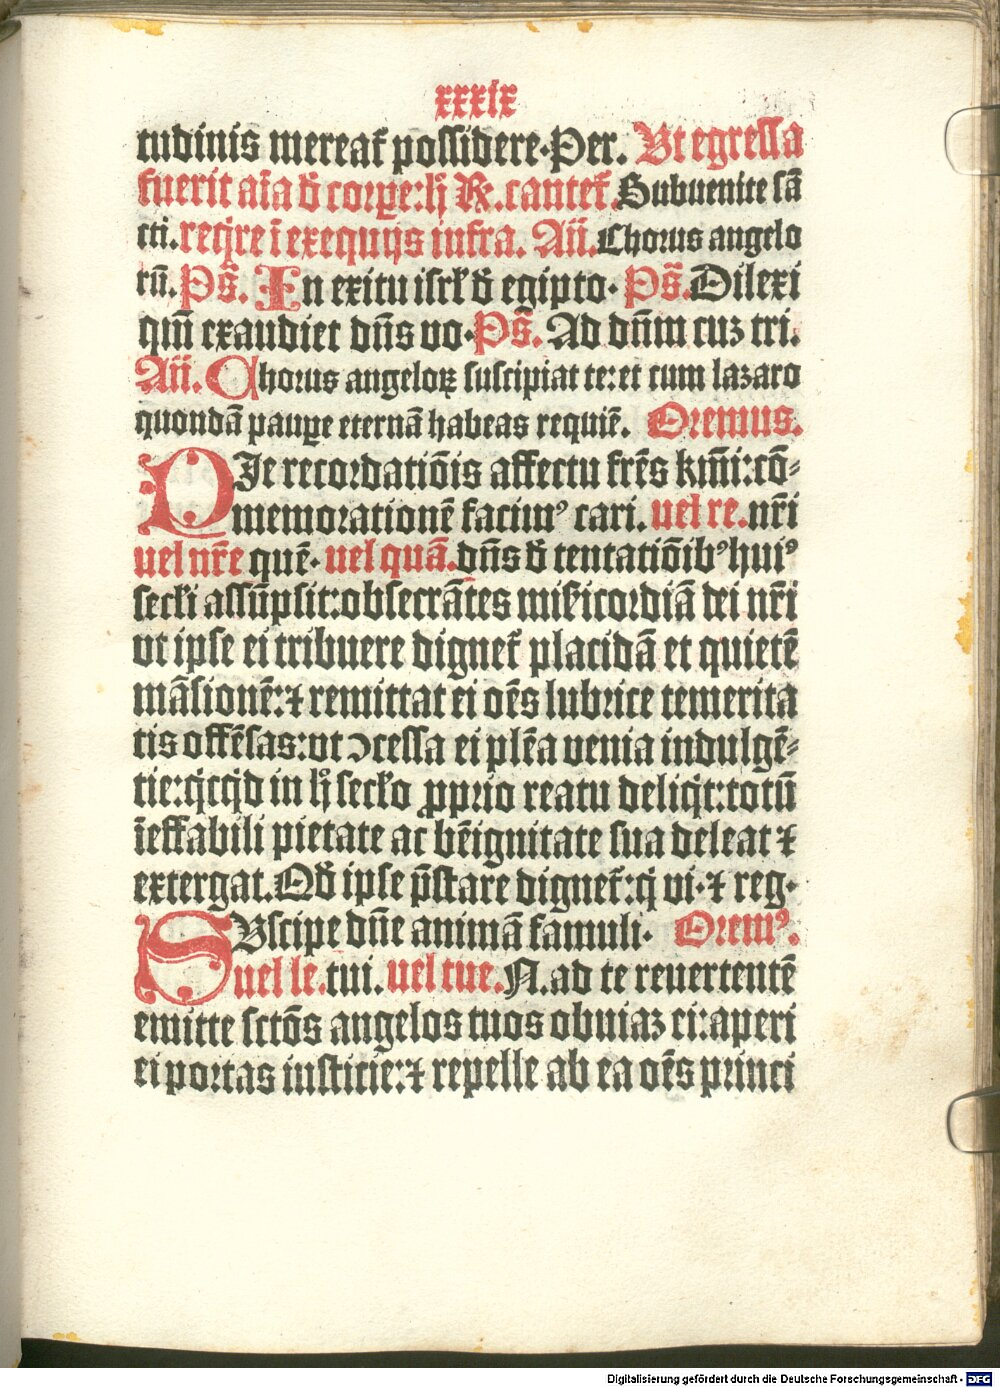 xxxix
tudinis mereat᷑ possidere. Per. Ut egressa
fuerit aīa đ corꝑe: h̄ ℟. cantet᷑. Subuenite sā
cti. req̇re ī exequijs infra. Añ. Chorus angelo
rū. Ps̄. In exitu isrł đ egipto. Ps̄. Dilexi
qm̄ exaudiet dn̄s vo. Ps̄. Ad dn̄m cuz tri.
Añ. Chorus angeloꝝ suscipiat te: et cum lazaro
quondā pauꝑe eternā habeas requiē. Oremus.
PIe recordatiōis affectu frēs km̄i: cō-
memorationē facimꝰ cari. uel re. nr̄i
uel nr̄e quē. uel quā. dn̄s đ tentatiōibꝰ huiꝰ
secłi assūpsit: obsecrātes mīsicordiā dei nr̄i
vt ipse ei tribuere dignet᷑ placidā et quietē
māsionē: ⁊ remittat ei oēs lubrice temerita
tis offēsas: vt ɔcessa ei plēa uenia indulgē-
tie: q̇cq̇d in h̊ secło ꝓprio reatu deliq̇t: totū
īeffabili pietate ac bēignitate sua deleat ⁊
extergat. Qđ ipse p̄stare dignet᷑: q̇ vi. ⁊ reg.
SUscipe dn̄e animā famuli. Oremꝰ.
uel le. tui. uel tue. N. ad te reuertentē
emitte sctōs angelos tuos obuiaz ei: aperi
ei portas iusticie: ⁊ repelle ab ea oēs princi
Digitalisierung gefördert durch die Deutsche Forschungsgemeinschaft - DFG